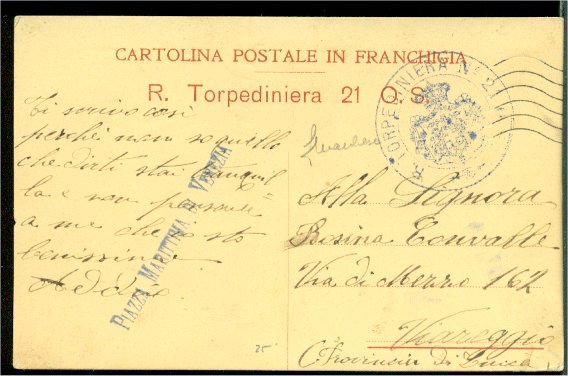 CARTOLINA POSTALE IN FRANCHIGIA
R. Torpediniera 21 O.S.
TORPEDINIERA N. 21
Ti scrivo così
perché non so quello
che dirti stai tranquil
la e non pensare
a me che io sto
benissimo
Addio
PIAZZA MARITTIMA DI VENEZIA
Alla Signora
Rosina Tonvalle
Via di Mezzo 162
Viareggio
(Provincia di Lucca)
25